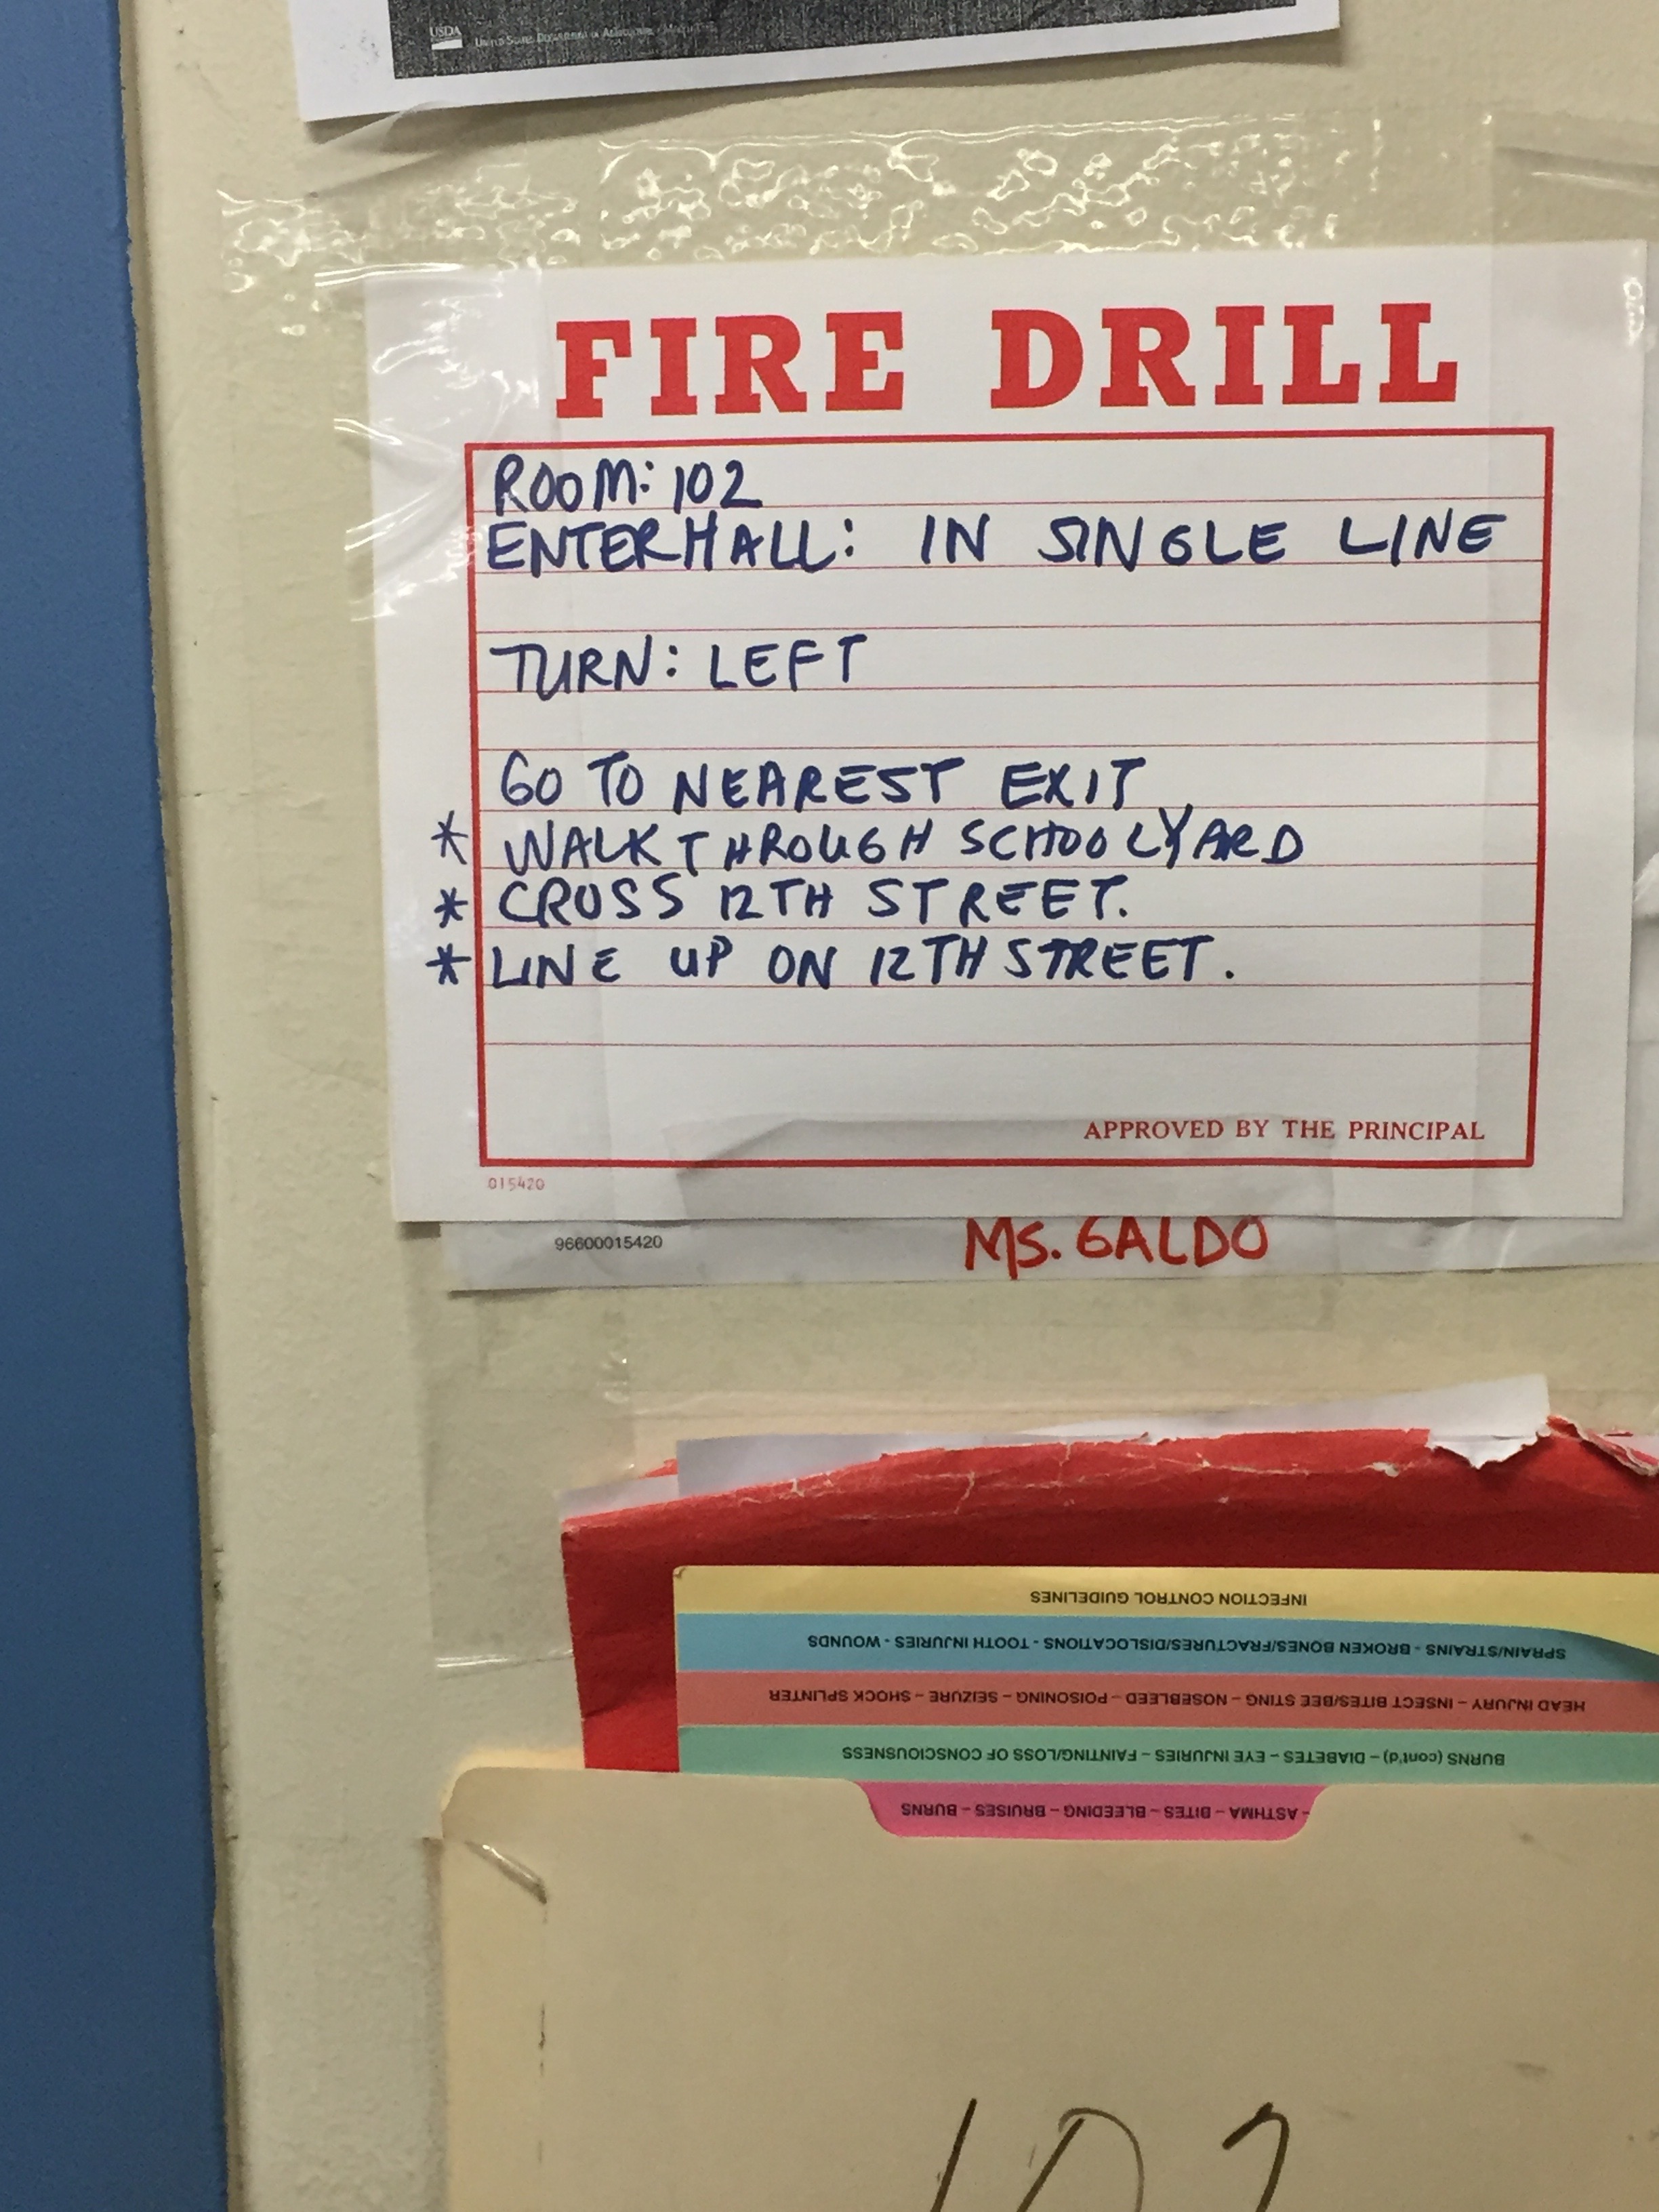 USDA
United States Department of Agriculture
FIRE DRILL
ROOM: 102
ENTER HALL: IN SINGLE LINE
TURN: LEFT
GO TO NEAREST EXIT
* WALK THROUGH SCHOOLYARD
* CROSS 12TH STREET.
* LINE UP ON 12TH STREET.
APPROVED BY THE PRINCIPAL
015420
96600015420
MS. GALDO
INFECTION CONTROL GUIDELINES
SPRAIN/STRAINS - BROKEN BONES/FRACTURES/DISLOCATIONS - TOOTH INJURIES - WOUNDS
HEAD INJURY – INSECT BITES/BEE STING – NOSEBLEED – POISONING – SEIZURE – SHOCK SPLINTER
BURNS (cont'd) – DIABETES – EYE INJURIES – FAINTING/LOSS OF CONSCIOUSNESS
- ASTHMA – BITES – BLEEDING – BRUISES – BURNS
102